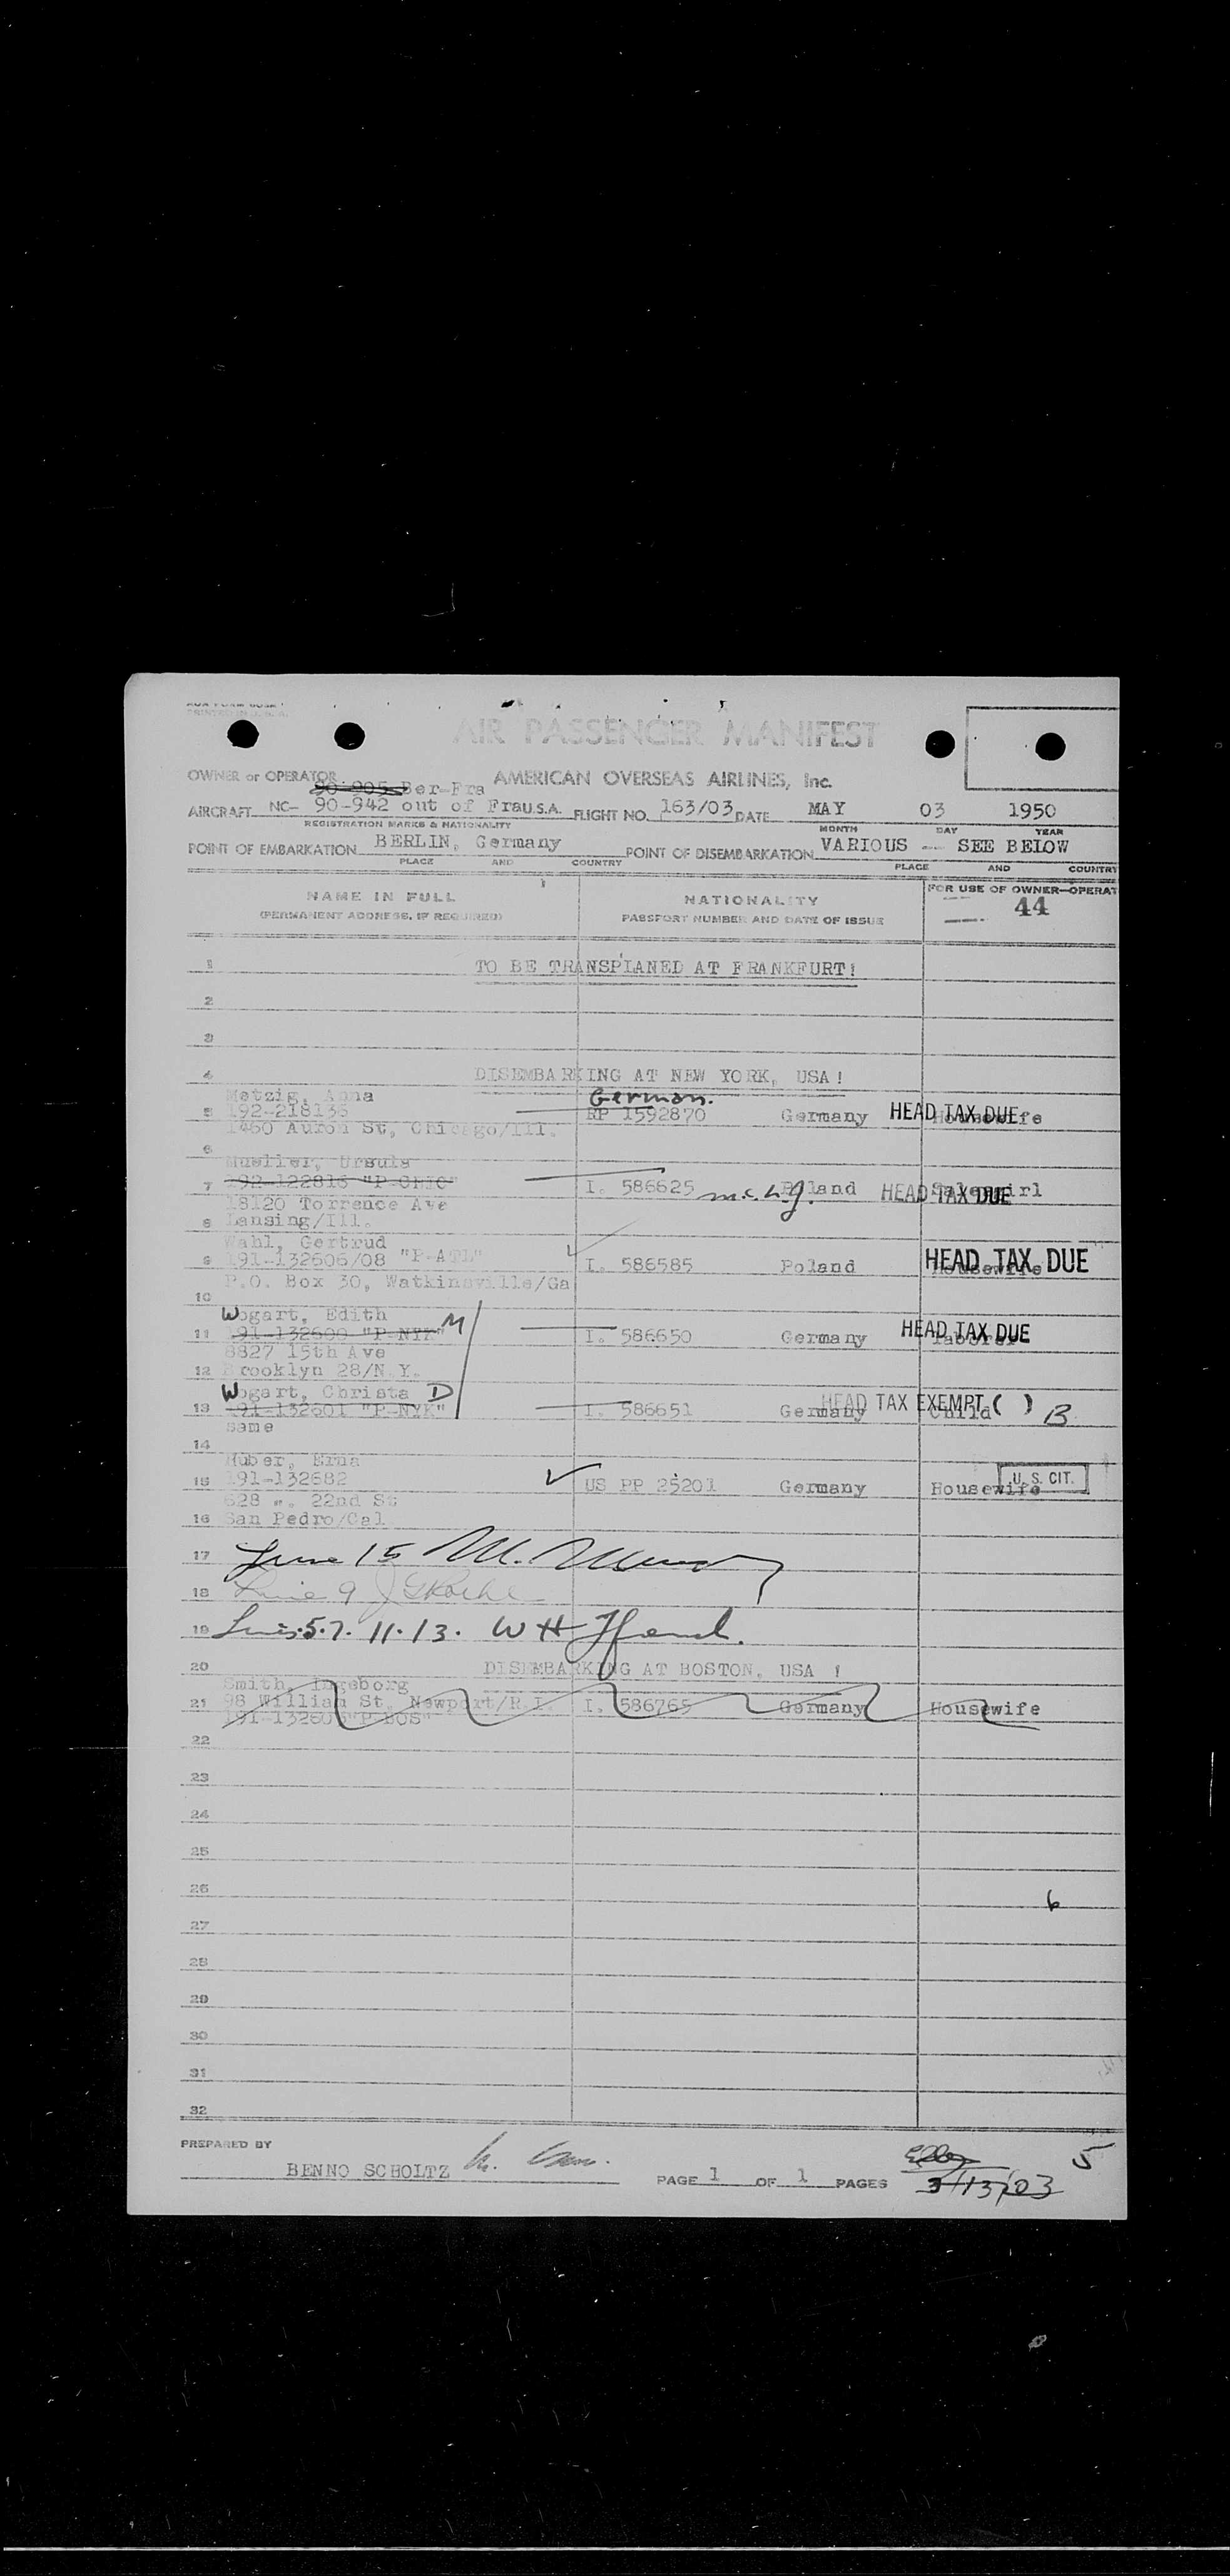 AIR PASSENGER MANIFEST
OWNER or OPERATOR AMERICAN OVERSEAS AIRLINES, Inc.
90-905 Ber-Fra
AIRCRAFT NC- 90-942 out of Fra U.S.A. FLIGHT NO. 163/03 DATE MAY 03 1950
REGISTRATION MARKS & NATIONALITY MONTH DAY YEAR
POINT OF EMBARKATION BERLIN, Germany POINT OF DISEMBARKATION VARIOUS -- SEE BELOW
PLACE AND COUNTRY PLACE AND COUNTRY
NAME IN FULL NATIONALITY FOR USE OF OWNER—OPERAT
(PERMANENT ADDRESS, IF REQUIRED) PASSPORT NUMBER AND DATE OF ISSUE 44
1 TO BE TRANSPLANED AT FRANKFURT!
2
3
4 DISEMBARKING AT NEW YORK, USA!
Metzig, Anna German.
5 192-218136 RP 1592870 Germany HEAD TAX DUE Housewife
1460 St, Chicago/Ill.
6
Mueller, Ursula
7 192-122816 "P-CHIC" I. 586625 Poland HEAD TAX DUE Salesgirl
18120 Torrence Ave
8 Lansing/Ill.
Wahl, Gertrud
9 191-132606/08 "P-ATL" I. 586585 Poland HEAD TAX DUE Housewife
P.O. Box 30, Watkinsville/Ga
10
Wogart, Edith M
11 191-132600 "P-NYK" I. 586650 Germany HEAD TAX DUE Laborer
8827 15th Ave
12 Brooklyn 28/N.Y.
Wogart, Christa D
13 191-132601 "P-NYK" I. 586651 Germany HEAD TAX EXEMPT ( ) Child B
same
14
Huber, Erna
15 191-132682 US PP 25201 Germany Housewife U. S. CIT.
828 w. 22nd St
16 San Pedro/Cal
17 Line 15 M.
18 Line 9
19 Lines 5. 7. 11. 13. W H
20 DISEMBARKING AT BOSTON, USA !
Smith, Ingeborg
21 98 William St, Newport/R.I. I. 586765 Germany Housewife
"P-BOS"
22
23
24
25
26 6
27
28
29
30
31
32
PREPARED BY
BENNO SCHOLTZ PAGE 1 OF 1 PAGES 5